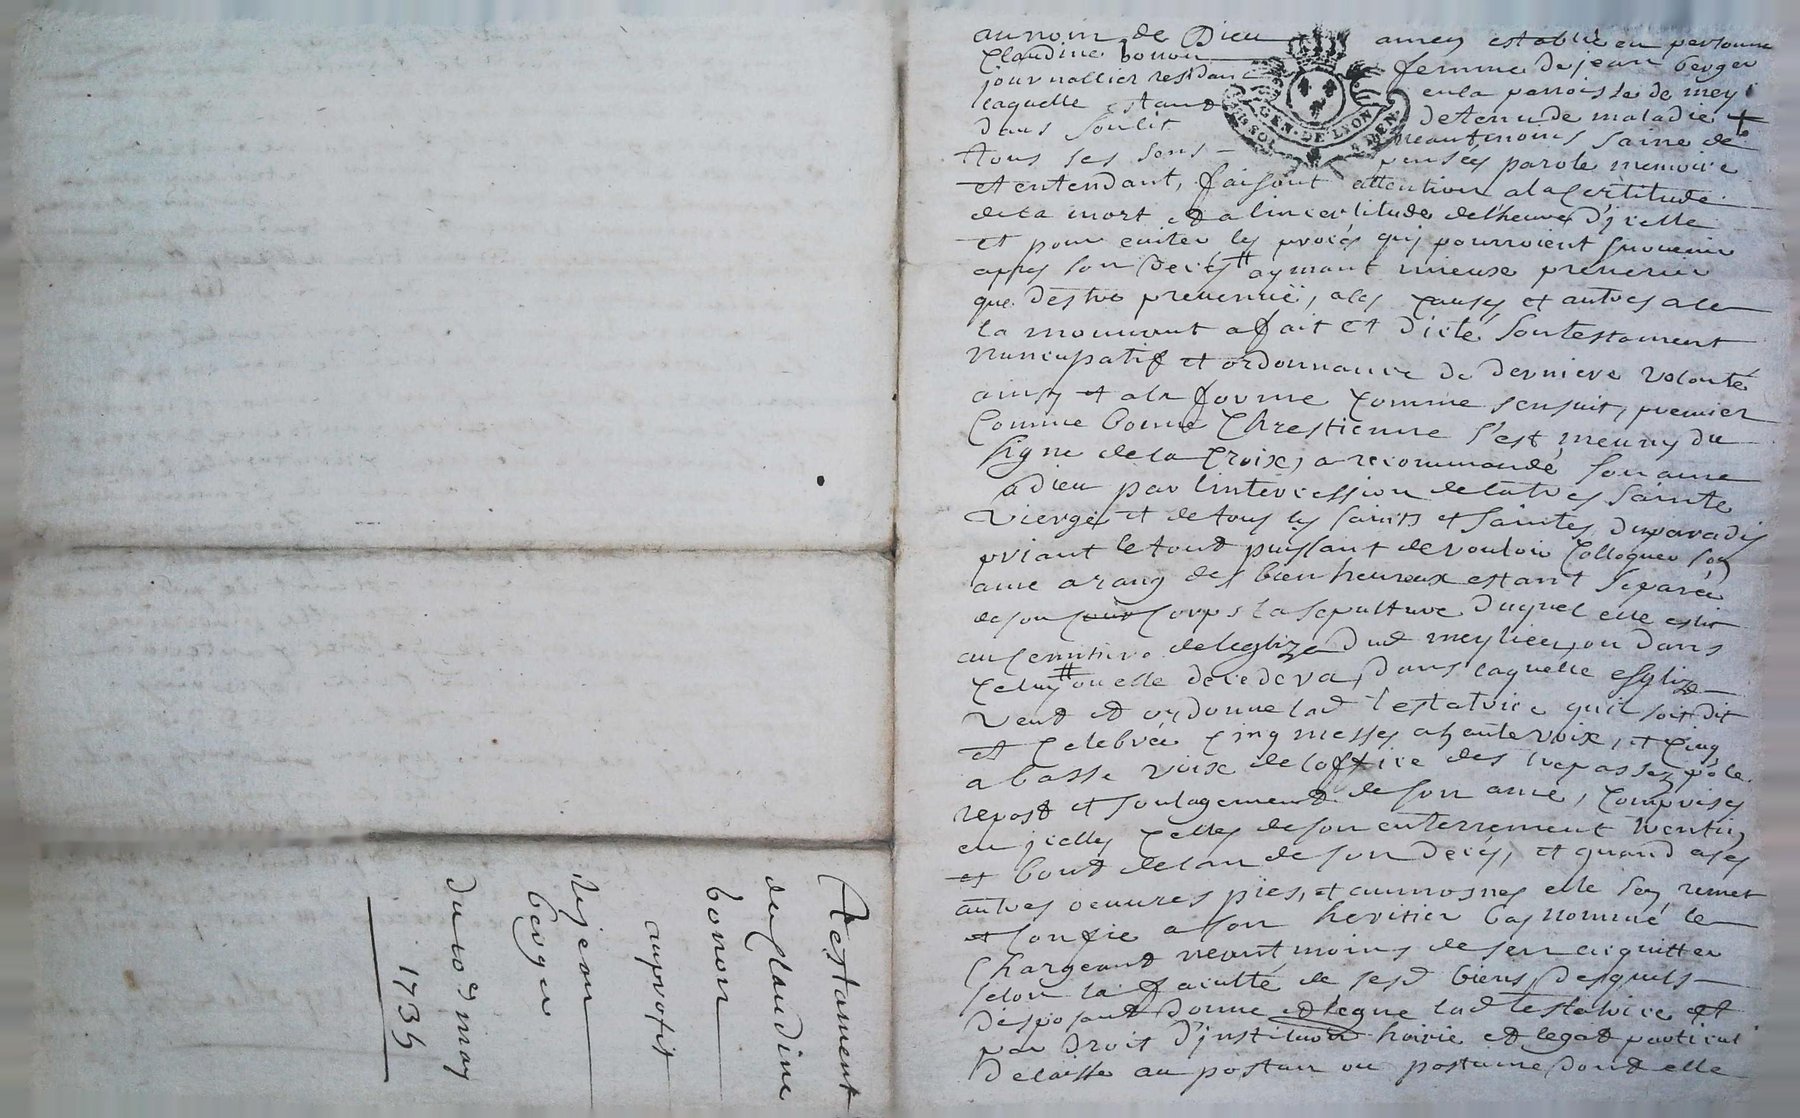 au nom de Dieu amen establie en personne
Claudine bonon femme de jean berger
journallier residant en la parroisse de mey
laquelle estant detenue de maladie +
dans son lit neantmoins saine de
tous ses sens - pensées parole memoire
et entendant, faisant attention a la certitude
de la mort et a lincertitude de l'heure d'jcelle
et pour euiter les procés quj pourroient suruenir
apres son decés # aymant mieux preuenir
que destre preuenuë, a ces causes et autres a ce
la mouuant a fait et dicté son testament
nuncupatif et ordonnance de derniere volonté
ainsy et a la forme comme sensuit, premier
comme bonne Chrestienne s'est meuny du
signe de la Croix, a recommandé son ame
a dieu par lintercession de la tres sainte
vierge et de tous les saints et saintes du paradis
priant le tout puissant de vouloir colloquer son
ame a rang des bienheureux estant separée
de son corps la sepulture duquel elle eslit
au cemitiere de leglize dud meylieu, ou dans
celuy # ou elle decedera, dans laquelle esglize
veut et ordonne lad testatrice quil soit dit
et celebrée cinq messes a haute voix, et cinq
a basse voix de loffice des trepassez p le
repost et soulagement de son ame, comprises
en jcelles celles de son enterrement
et bout de lan de son decés, et quand a ses
autres oeuures pies, et aumosnes elle sen remet
et confie a son heritier bas nommé le
chargeant neantmoins de sen acquitter
selon la faculté de sesd biens, desquels
disposant donne et legue lad testatrice et
par droit d'jnstitution hoirie et legat particul
delaisse au postum ou postume dont elle
Testament
de Claudine
bonon
au profit
de jean
berger
du 10e may
1735
AGEN. DE LYON